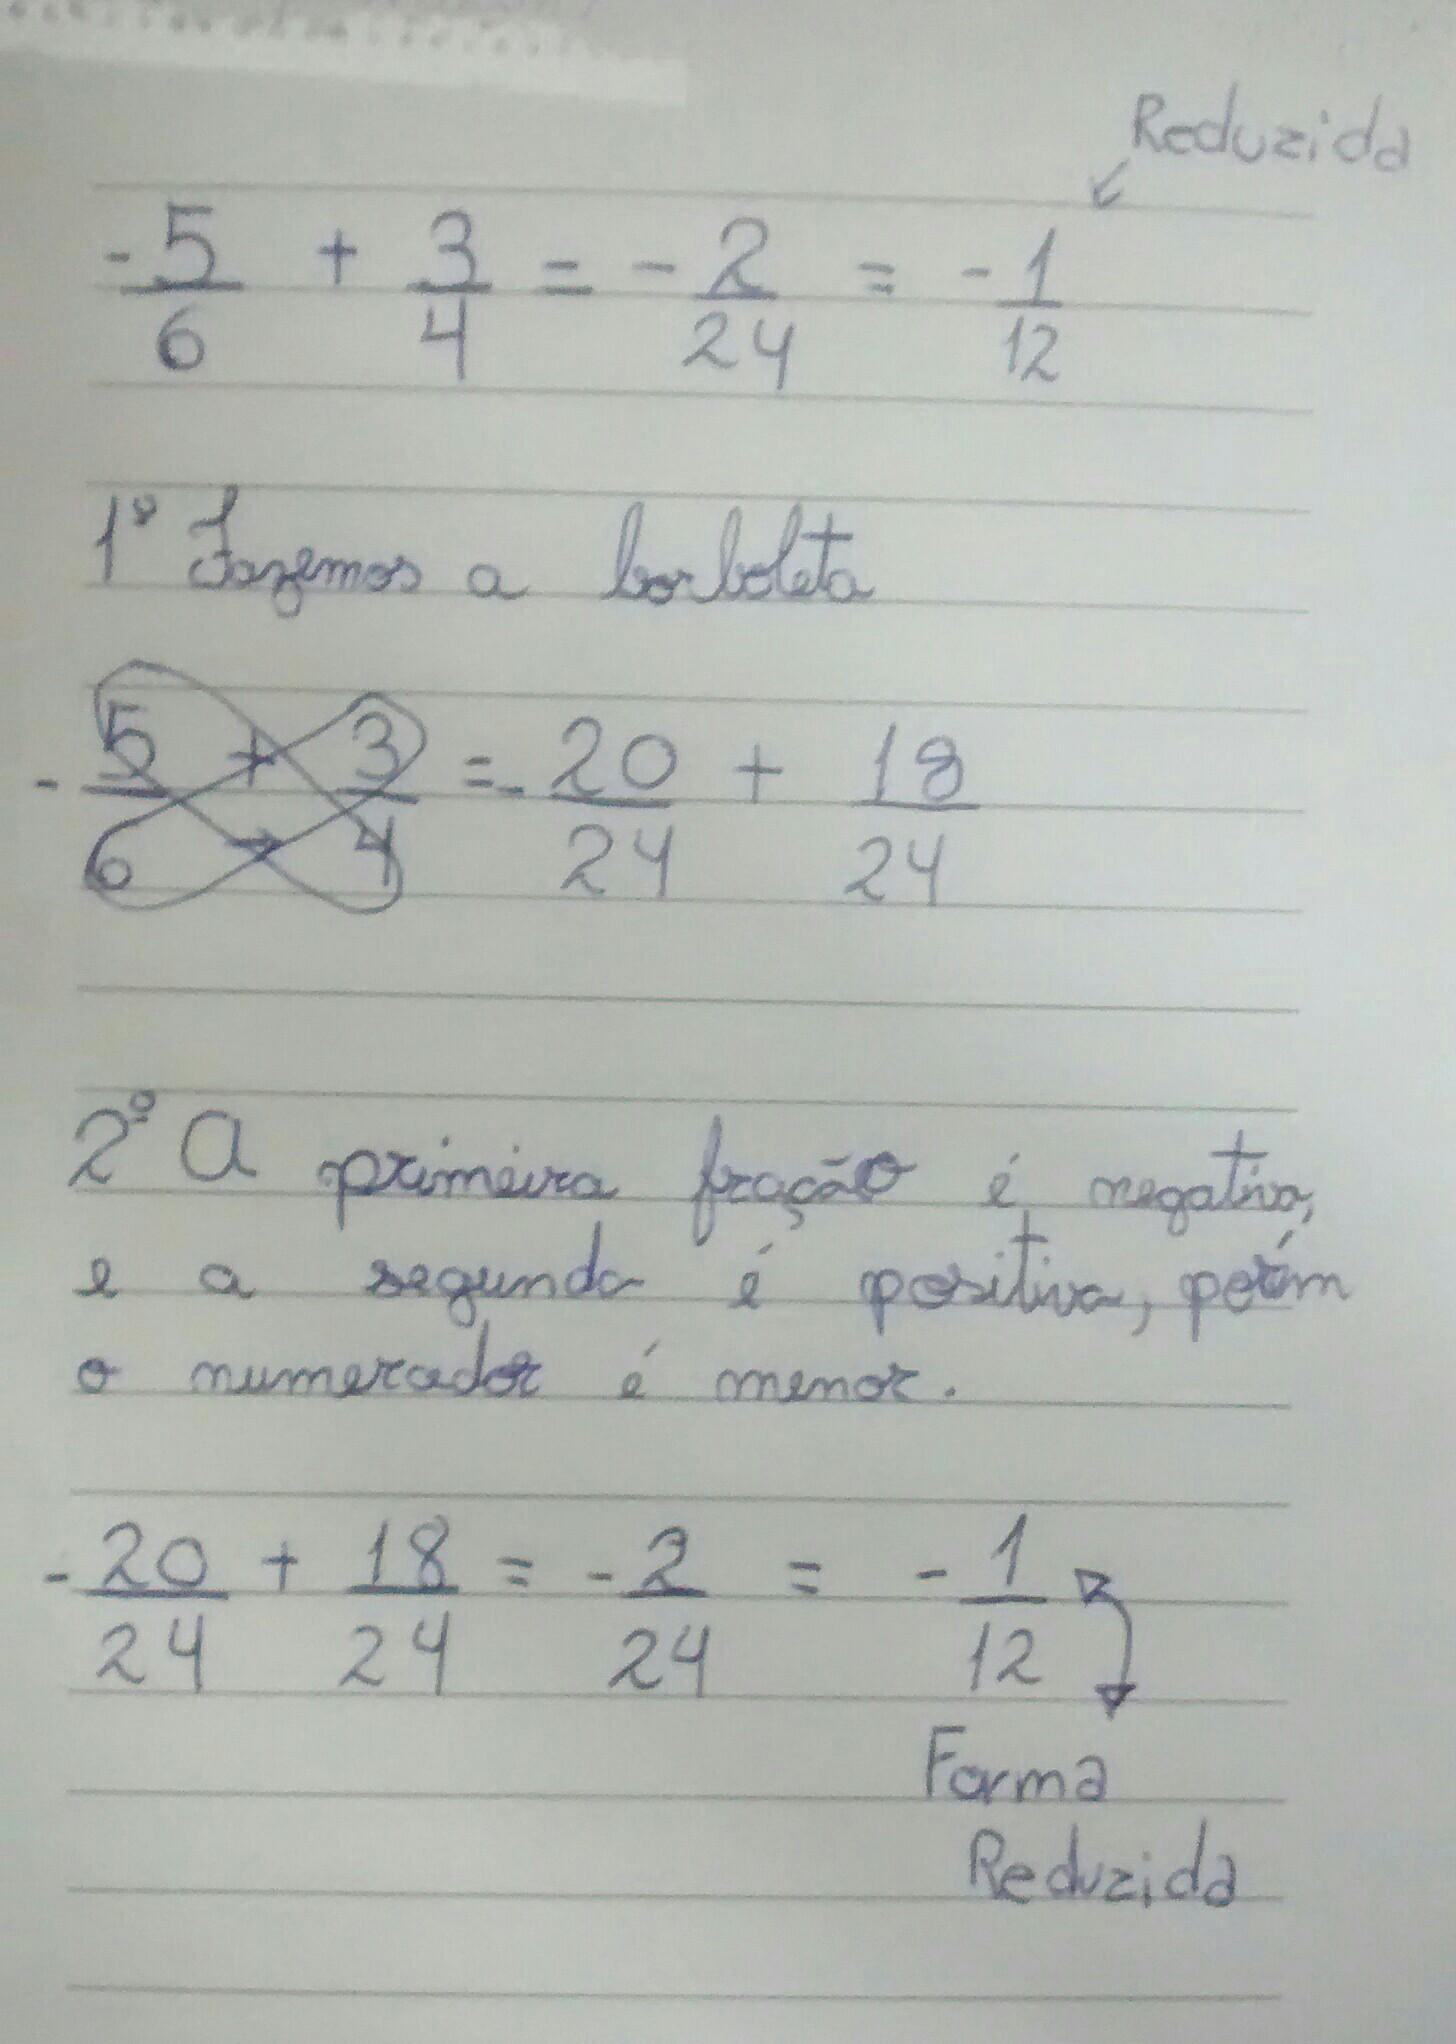 Reduzida
-5/6 + 3/4 = -2/24 = -1/12
1º Fazemos a borboleta
-5/6 + 3/4 = -20/24 + 18/24
2º A primeira fração é negativa,
e a segunda é positiva, porém
o numerador é menor.
-20/24 + 18/24 = -2/24 = -1/12
Forma
Reduzida